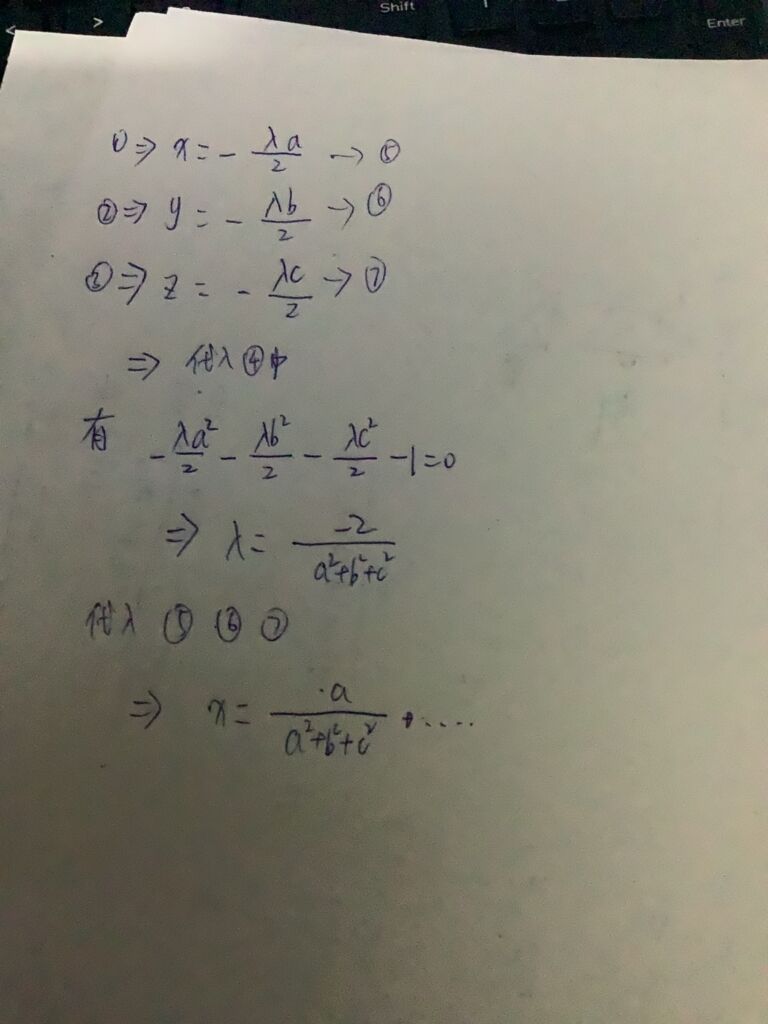 < > Shift Enter
① ⇒ x = - λa/2 → ⑤
② ⇒ y = - λb/2 → ⑥
③ ⇒ z = - λc/2 → ⑦
⇒ 代入④中
有 - λa²/2 - λb²/2 - λc²/2 - 1 = 0
⇒ λ = -2/(a²+b²+c²)
代入 ⑤ ⑥ ⑦
⇒ x = a/(a²+b²+c²) .....